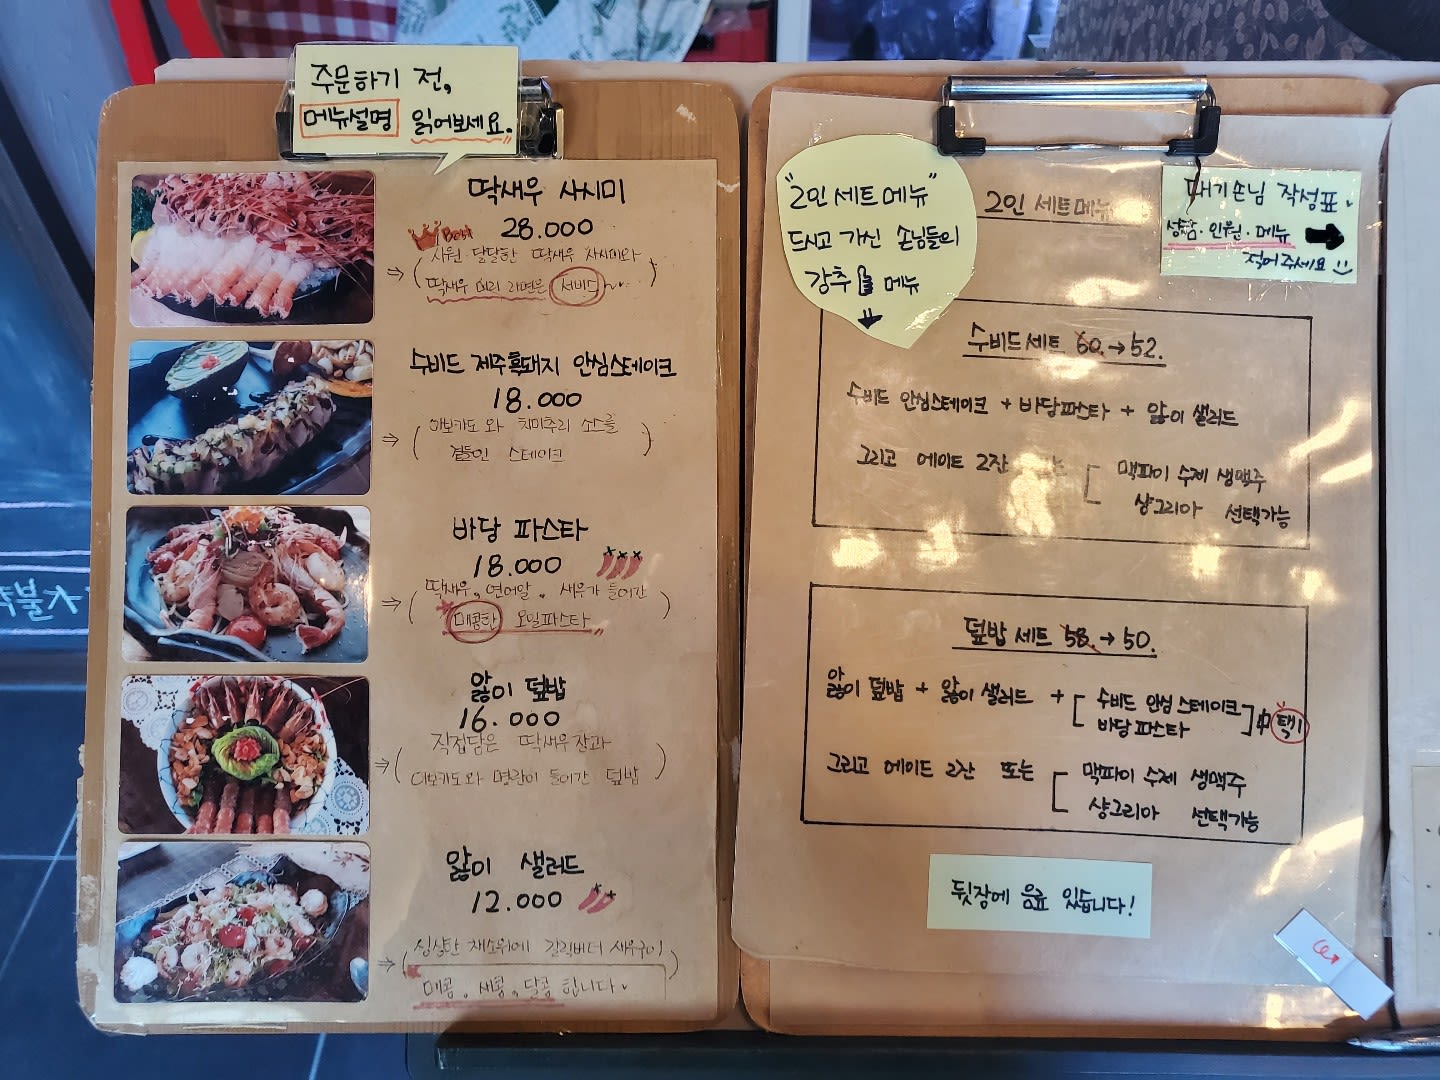 주문하기 전,
메뉴설명 읽어보세요.
딱새우 사시미
Best 28.000
⇒ ( 시원·달달한 딱새우 사시미와
딱새우 머리 라면은 서비스~ )
수비드 제주흑돼지 안심스테이크
18.000
⇒ ( 아보카도와 치미추리 소스를
곁들인 스테이크 )
바당 파스타
18.000
⇒ ( 딱새우, 연어알, 새우가 들어간
매콤한 오일파스타 )
앓이 덮밥
16.000
⇒ ( 직접담은 딱새우장과
아보카도와 명란이 들어간 덮밥 )
앓이 샐러드
12.000
⇒ ( 싱싱한 채소위에 갈릭버터 새우구이
매콤, 새콤, 달콤 합니다. )
"2인 세트메뉴"
드시고 가신 손님들의
강추 메뉴
2인 세트메뉴
대기손님 작성표
성함·인원·메뉴 →
적어주세요
수비드세트 60.→52.
수비드 안심스테이크 + 바당파스타 + 앓이 샐러드
그리고 에이드 2잔 또는 [ 맥파이 수제 생맥주
샹그리아 선택가능
덮밥 세트 58.→50.
앓이 덮밥 + 앓이 샐러드 + [ 수비드 안심 스테이크
바당파스타 ] 中 택1
그리고 에이드 2잔 또는 [ 맥파이 수제 생맥주
샹그리아 선택가능
뒷장에 음료 있습니다!